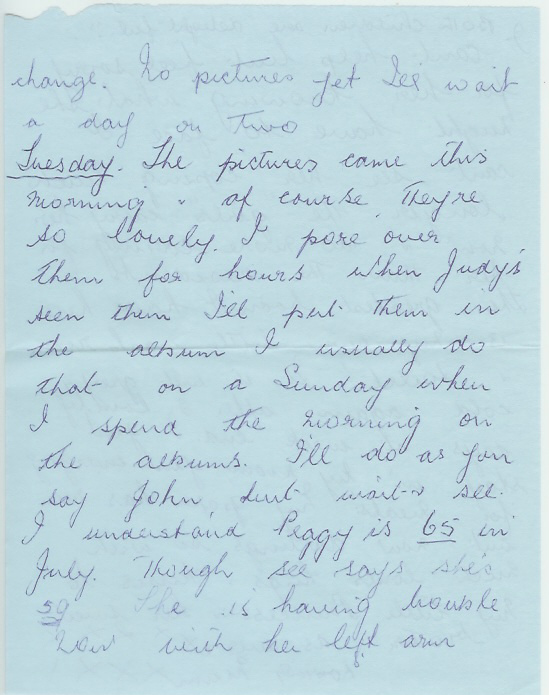 change. No pictures yet I'll wait
a day or two
Tuesday. The pictures came this
morning & of course they're
so lovely. I pore over
them for hours when Judy's
seen them I'll put them in
the album I usually do
that on a Sunday when
I spend the morning on
the albums. I'll do as you
say John but wait & see.
I understand Peggy is 65 in
July. Though see says she's
59 She is having trouble
now with her left arm